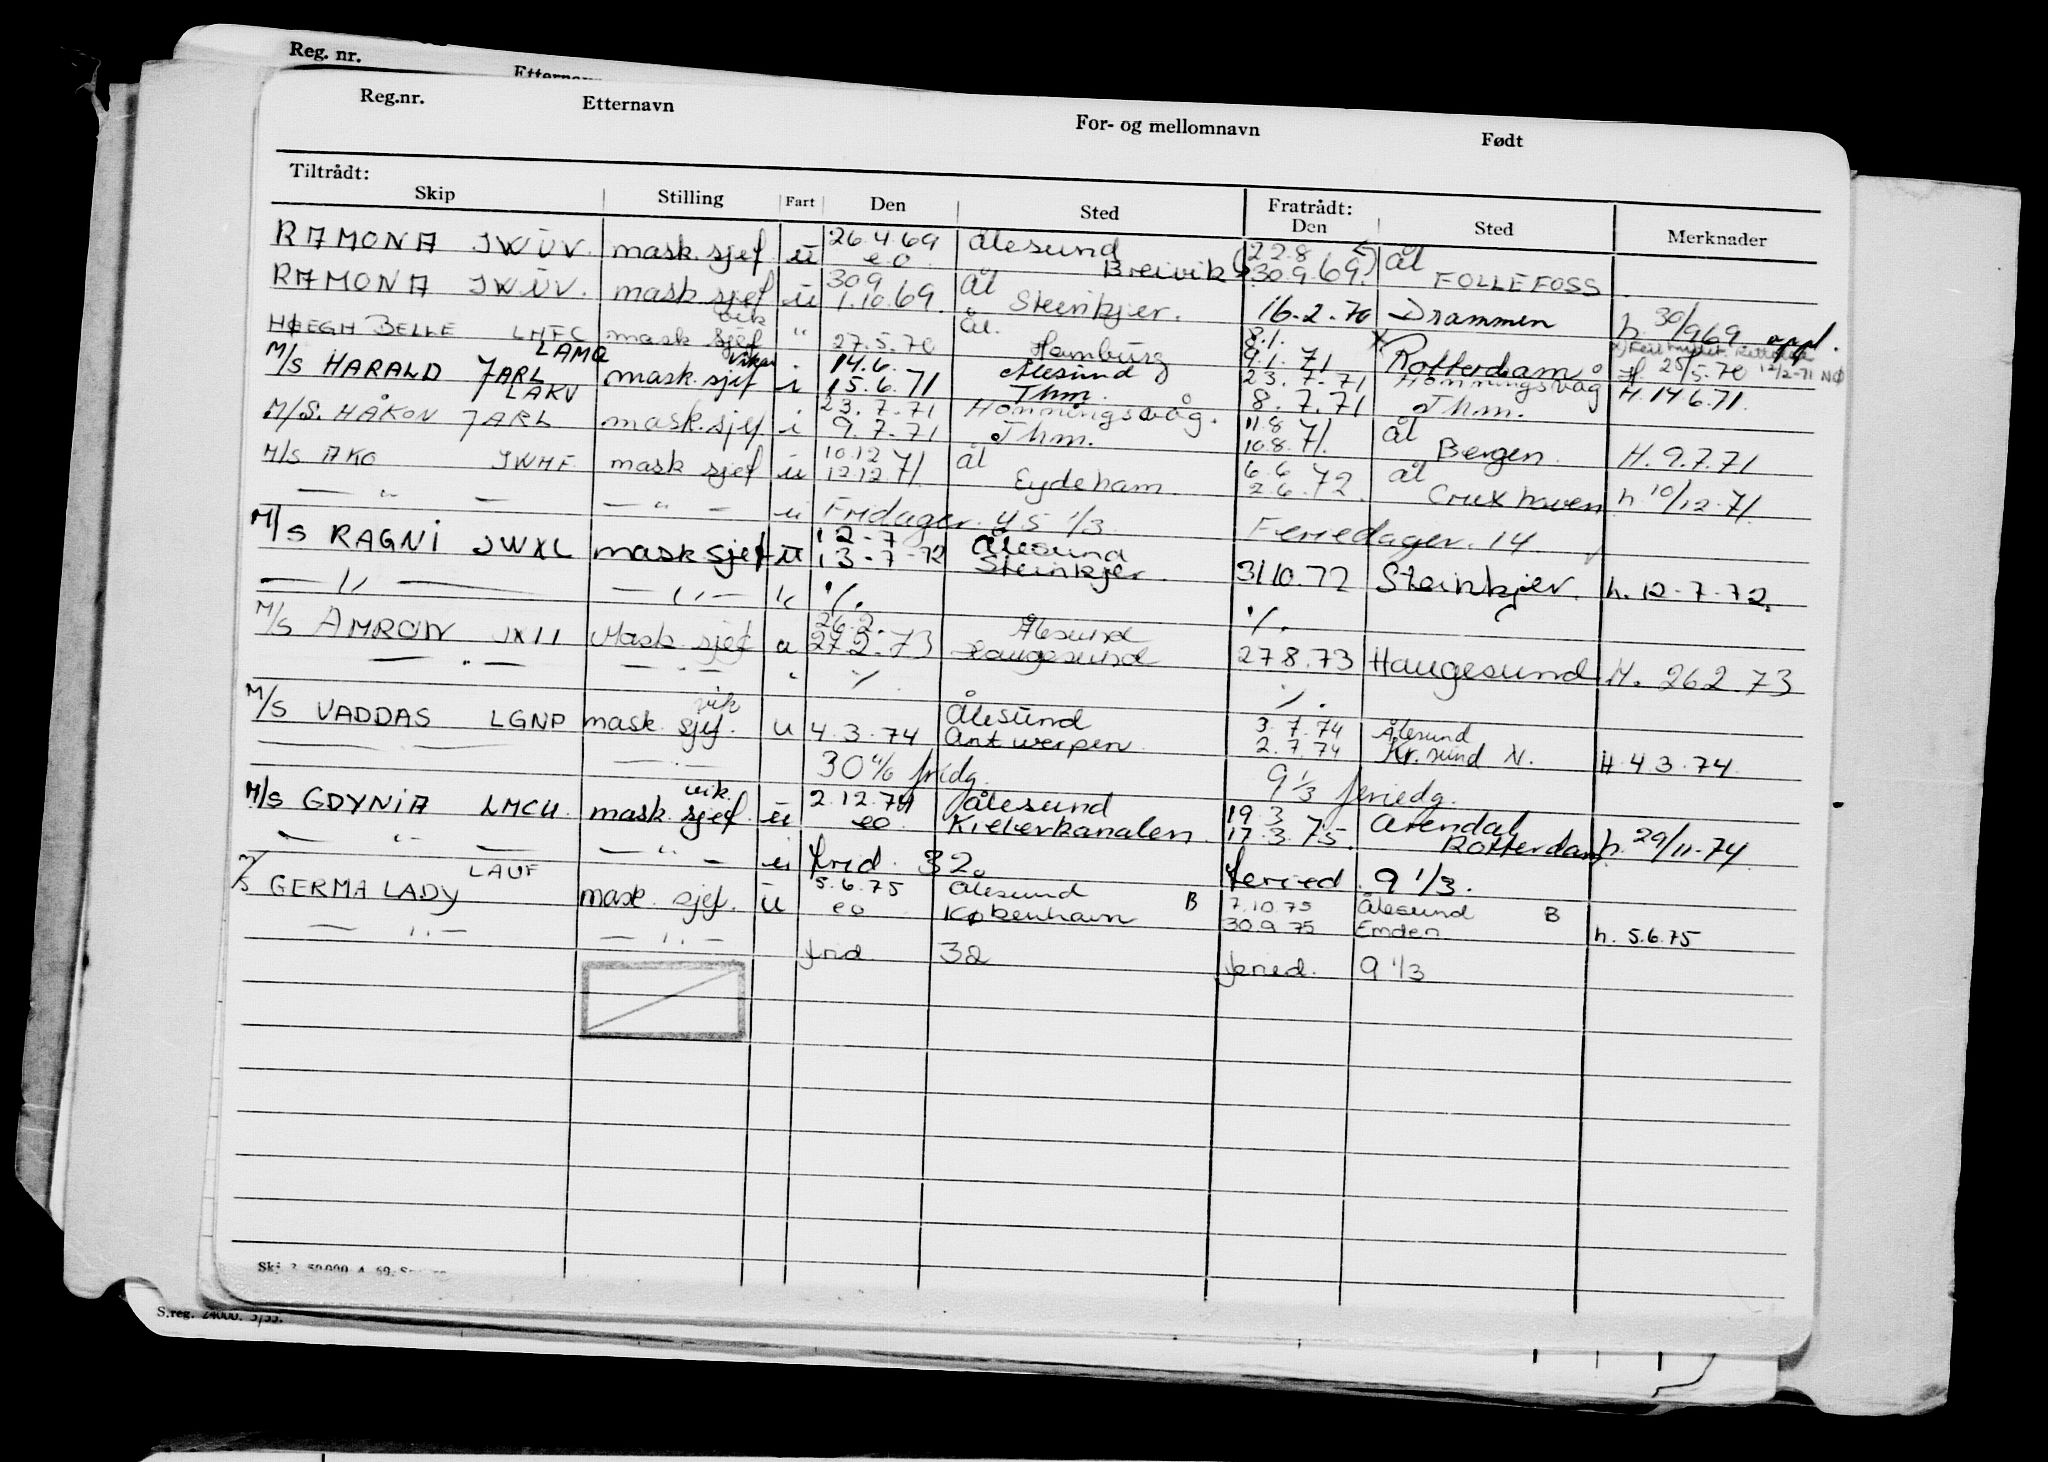 Reg. nr.
Reg.nr. Etternavn For- og mellomnavn Født
Tiltrådt: Fratrådt:
Skip Stilling Fart Den Sted Den Sted Merknader
RAMONA JWUV. mask. sjef u 26.4.69 Ålesund (22.8 ål
eo Breivik 30.9.69.) FOLLEFOSS
RAMONA JWUV. mask sjef u 30.9 ål
1.10.69. Steinkjer. 16-2-70 Drammen h. 30/9 69 oppl.
HØEGH BELLE LHFC mask sjef vik " 27.5.70 ål. Hamburg 8.1. 9.1.71 x Rotterdam H 25/5-70 12/2-71 NØ
M/S HARALD JARL LAMQ mask.sjef vikar i 14.6. Ålesund 23.7.71 Honningsvåg
15.6.71 Thm. 8.7.71 Thm. H.14 6.71.
M/S. HÅKON JARL LAKV mask.sjef i 23.7.71 Honningsvåg. 11.8 ål
9.7.71 Thm. 10.8.71. Bergen. H. 9.7.71
M/S AKO JWMF mask sjef u 10.12 ål 6.6 ål
12.12.71. Eydeham. 2.6.72. Cruxhaven h 10/12.71.
— " — — " — u Fridager. 45 1/3. Feriedager. 14
M/S RAGNI JWXL mask sjef u 12-7 Ålesund
13-7-72 Steinkjer 31 10.72 Steinkjer. h. 12-7-72.
— ,, — — ,, — ,, ./. ./.
M/S AMRON JXII Mask. sjef u 26.2. Ålesund
27.2.73 Haugesund 27 8.73 Haugesund H. 26 2 73
— . — — " — " ./. ./.
M/S VADDAS LGNP mask. sjef. vik u Ålesund 3.7.74 Ålesund
4.3.74 Antwerpen 2.7.74 Kr.sund N. H 4 3.74
30 fridg. 9 1/3 feriedg.
M/S GDYNIA LMCU. mask. sjef vik. u 2.12.74 Ålesund 19.3 Arendal
eo Kielerkanalen. 17.3.75. Rotterdam h. 29/11-74
— " — — " — u frid. 32. feried. 9 1/3.
M/S GERMA LADY LAUF mask. sjef. u 5.6.75 Ålesund B 7.10.75 Ålesund B
eo København 30.9.75 Emden h. 5.6.75
— ,, — — ,, — frid 32 feried. 9 1/3
S.reg. 24000. 3/55.